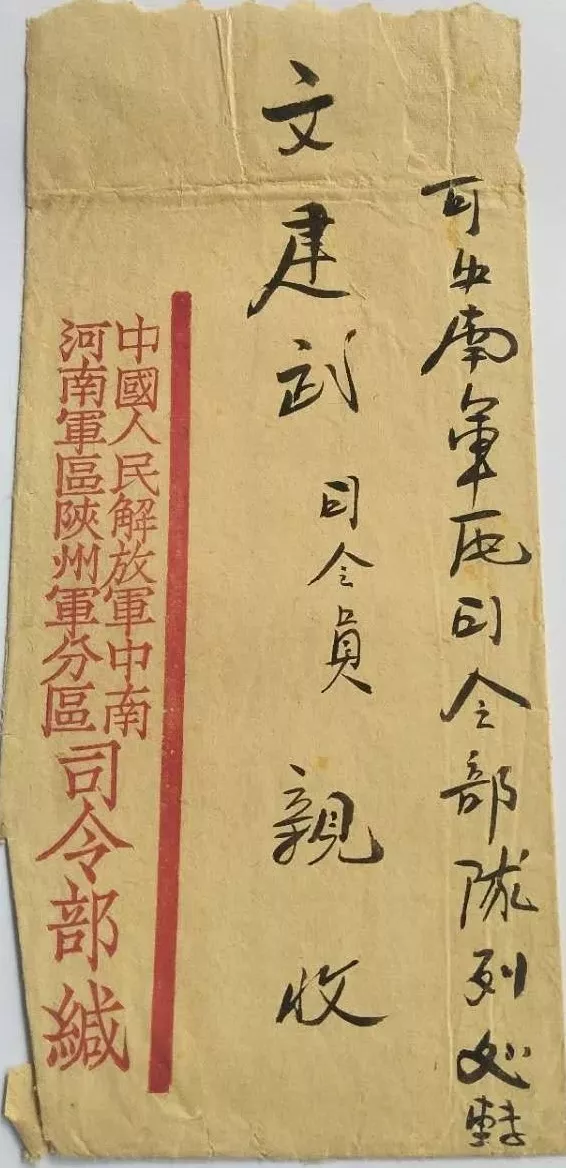 南軍区司令部隊列处轉
文建武司令員親收
中國人民解放軍中南
河南軍區陝州軍分區
司令部緘